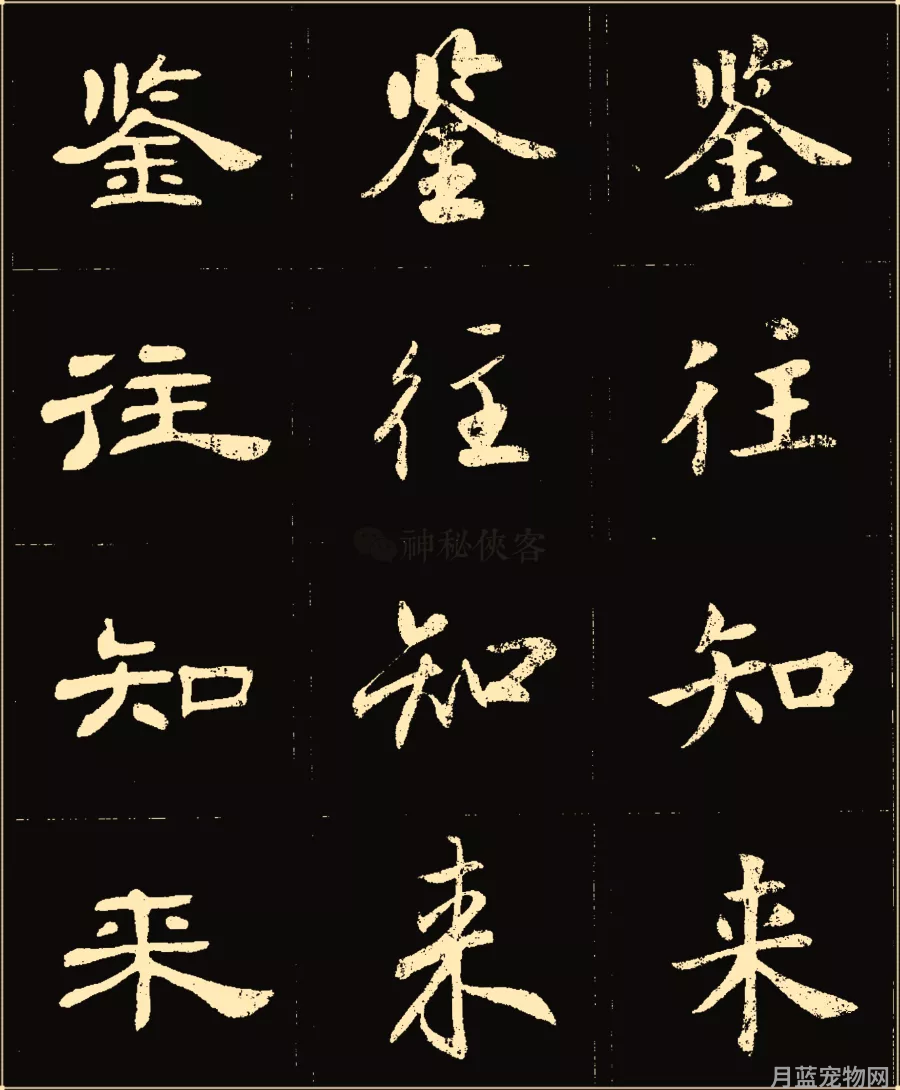 鉴 鉴 鉴
往 往 往
神秘侠客
知 知 知
来 来 来
月蓝宠物网